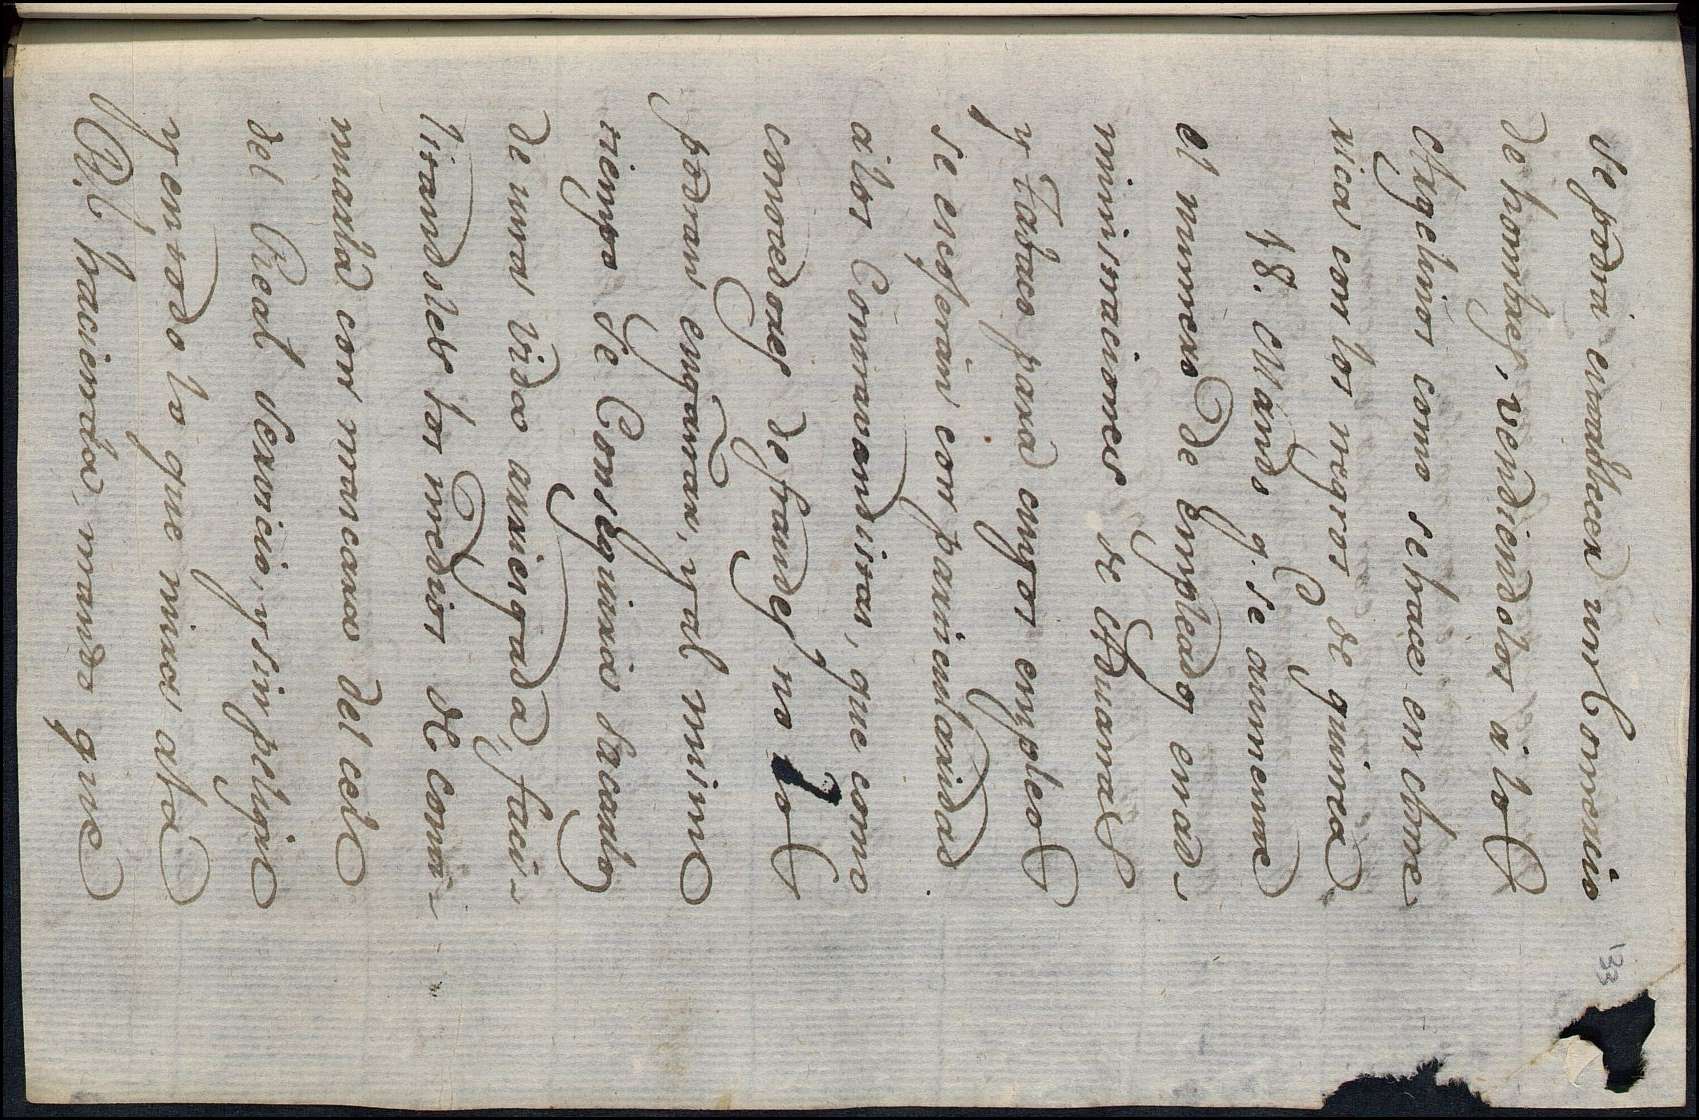 133
se podrá establecer un Comercio
de hombres, vendiendolos á los
Argelinos como se hace en Ame
rica con los negros de guinea
18. Mando q. se aumente
el numero de Empleados en ad-
ministraciones de Aduanas
y Tabaco para cuyos empleos
se escojerán con particularidad
á los Contravandistas, que como
conocedores de fraudes no los
podran engañar, y al mismo
tiempo se Conseguirá sacarlos
de una vida arriesgada, faci-
litandoles los medios de conti-
nuarla con mascara del celo
del Real servicio, y sin peligro
y en todo lo que mira ala
Rl. hacienda, mando que